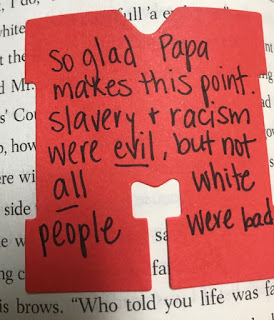 So glad Papa
makes this point.
slavery + racism
were evil, but not
all white
people were bad
brows. "Who told you life was